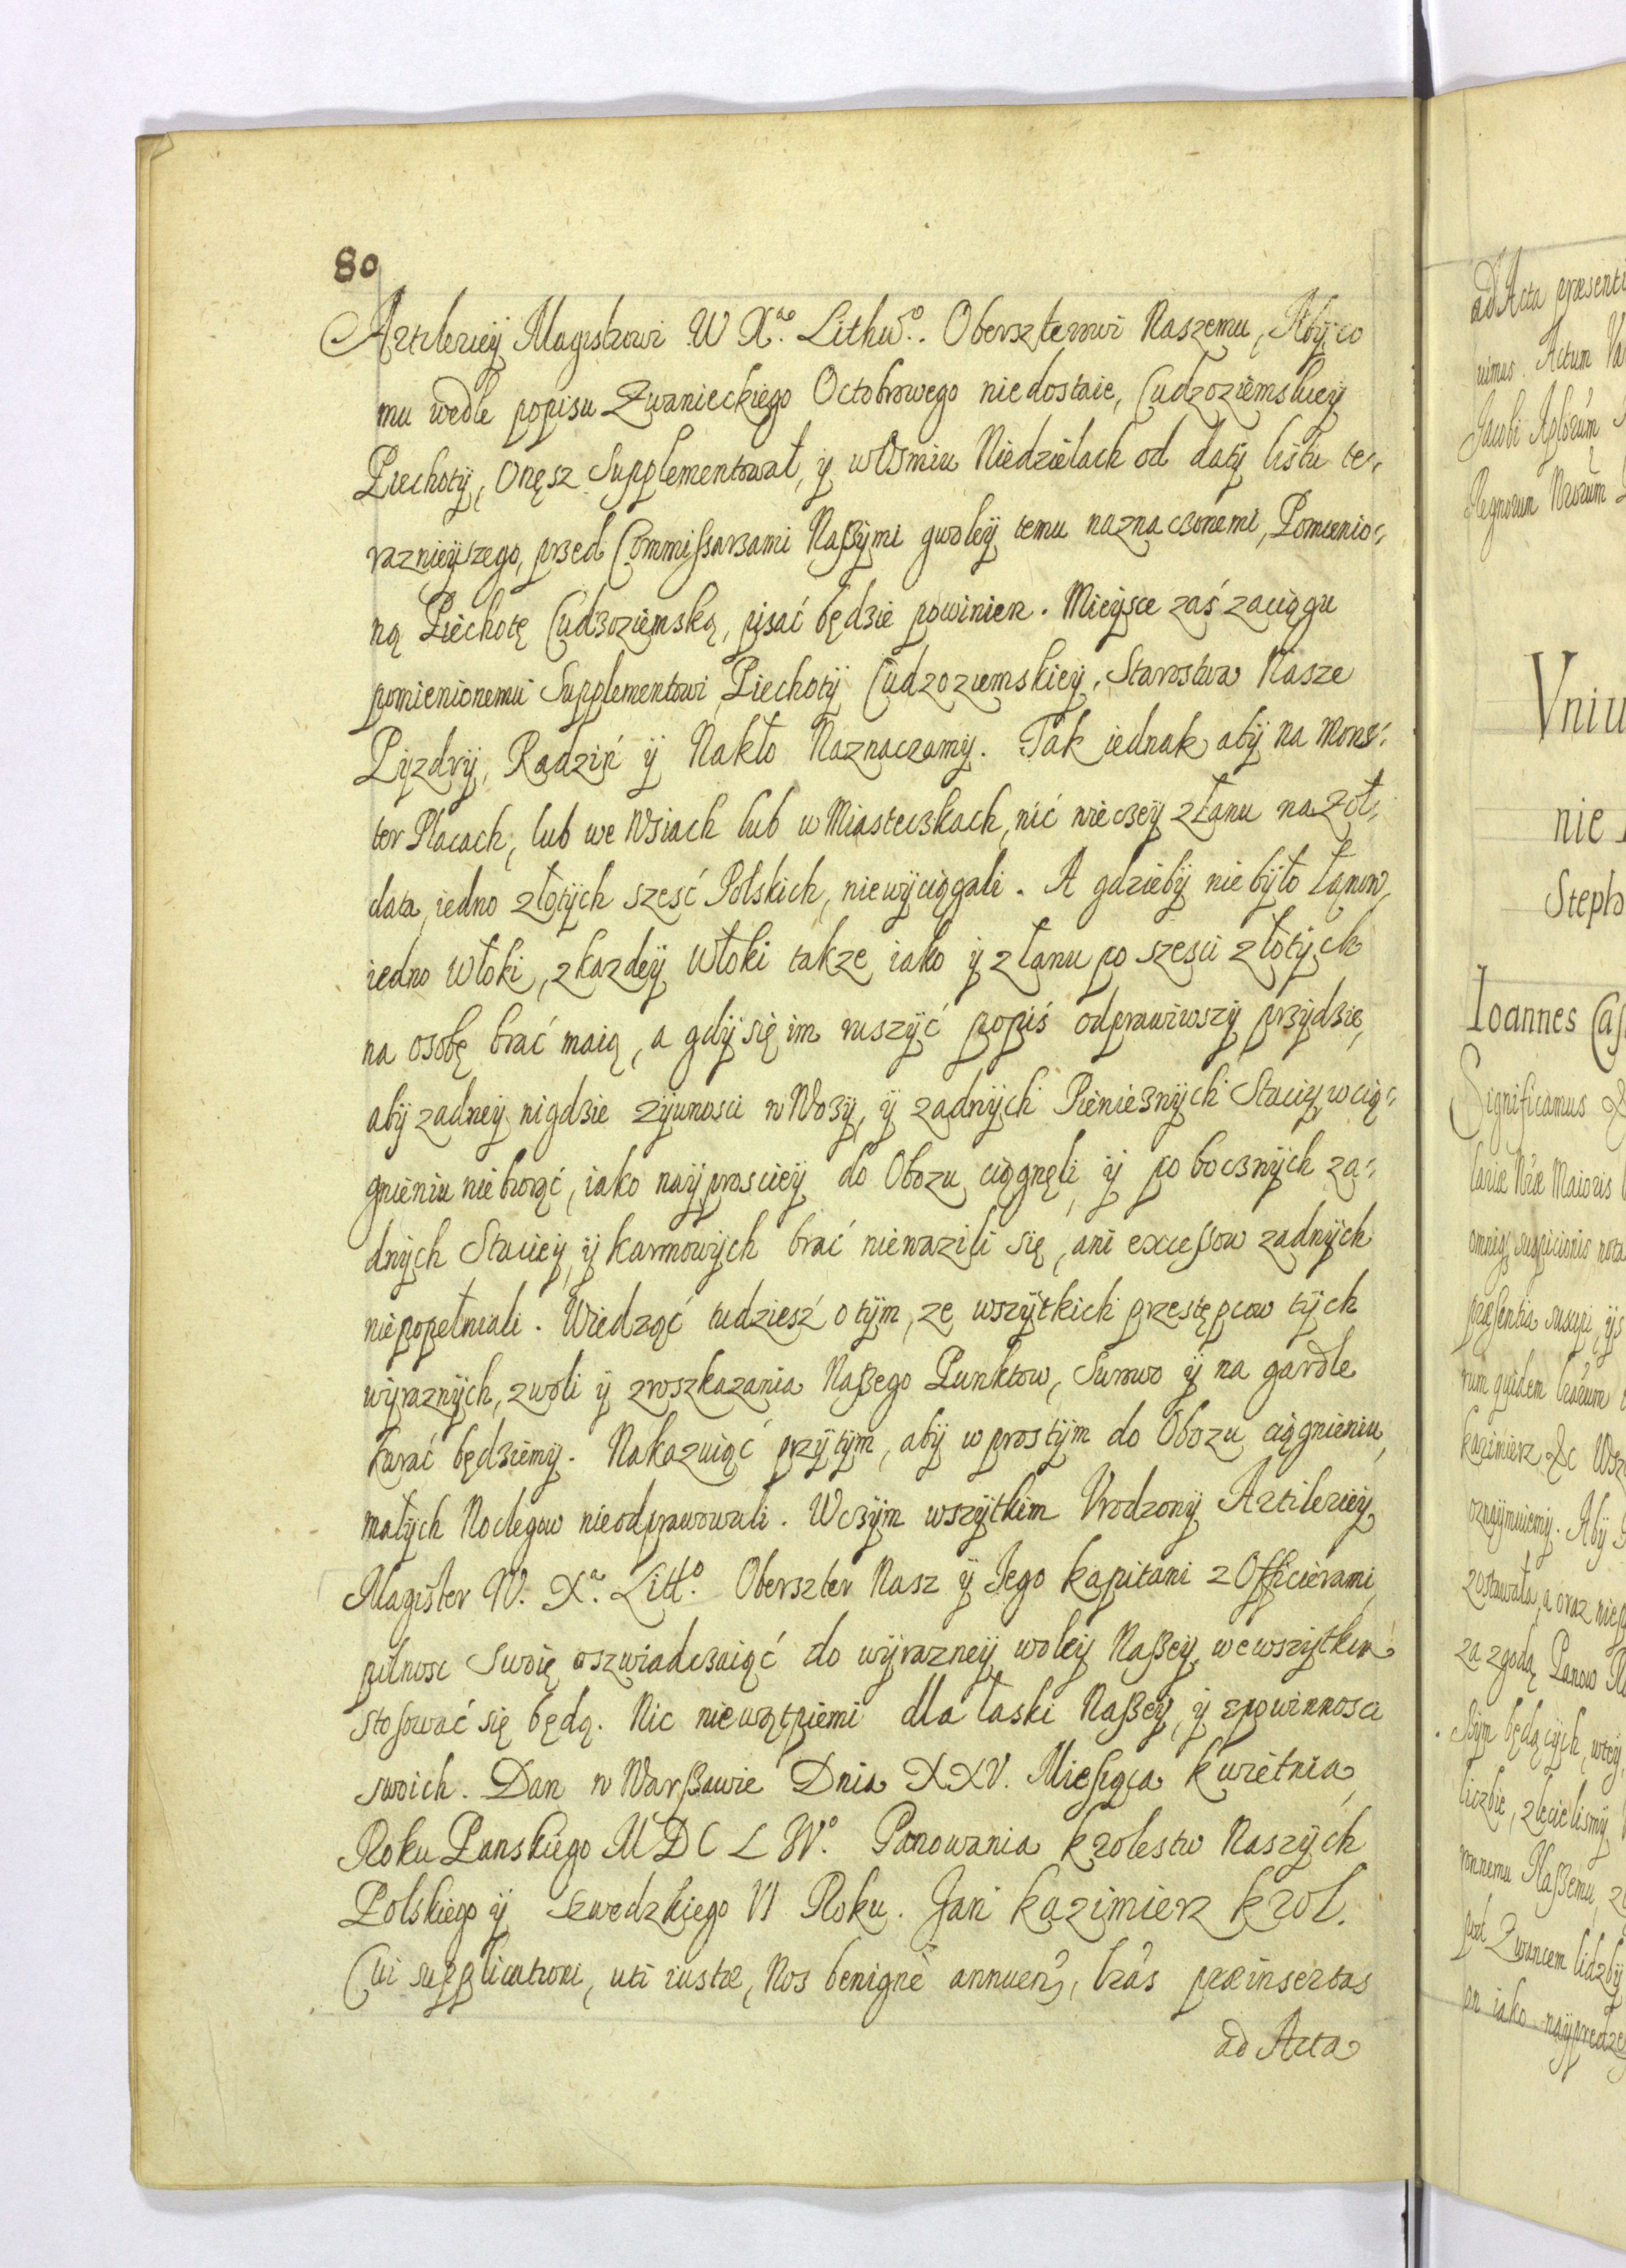 80
Artileriey Magistrowi W Xa. Lithwo. Oberszterowi Naszemu, Aby co
mu wedle popisu Zwanieckiego Octobrowego niedostaie, Cudzoziemskiey
Piechoty, onęsz Supplementował, y w Osmiu Niedzielach od daty listu te⸗
raznieyszego, przed Commissarzami Naszymi gwoley temu naznaczonemi, Pomienio⸗
ną Piechotę Cudzoziemską, pisać będzie powinien. Mieysce zaś zaciągu
pomienionemu Supplementowi Piechoty Cudzoziemskiey, Starostwa Nasze
Pyzdry, Radziń y Nakło Naznaczamy. Tak iednak aby na Mons⸗
ter Placach, lub we Wsiach lub w Miasteczkach, nić wieczey złanu na Zoł⸗
data, iedno złotych szesć Polskich, niewyciągali. A gdzieby nie było Łanow,
iedno włoki, z kazdey włoki takze iako y z łanu po szesci złotych
na osobę brać maią, a gdy się im ruszyć popiś odprawiwszy przydzie,
aby zadney nigdzie zywnosci w Wozy, y zadnych Pienieznych Staciy w cią⸗
gnieniu nie biorąć, iako nayprosciey do Obozu ciągnęli y pobocznych za⸗
dnych Staciey y karmowych brać nie wazili się, ani excessow zadnych
niepopełniali. Wiedząć tudziesz o tym, ze wszytkich przestępcow tych
wyraznych, zwoli y zroszkazania Naszego Punktow, Surowo y na gardle
karać będziemy. Nakazuiąć przytym, aby w prostym do Obozu ciągnieniu,
małych Noclegow nieodprawowali. W czym wszytkim Vrodzony Artileriey
Magister W. Xa. Litto. Oberszter Nasz y Iego kapitani z Officierami,
pilnosc Swoię oszwiadczaiąć do wyrazney woley Naszey, we wszytkim
stosować się będą. Nic niewątpiemi dla łaski Naszey, y zpowinnosci
swoich. Dan w Warszawie Dnia XXV. Miesiąca kwietnia,
Roku Panskiego MDCLIVo. Panowania krolestw Naszych
Polskiego y Szwedzkiego VI Roku. Jan kazimierz krol.
Cui supplicationi, uti iustæ, Nos benignè annuen', lras præinsertas
ad Acta
ad Acta præsenti
uimus. Actum
Regnorum Nrorum
Vniu
nie
Steph
Ioannes Cas
Significamus
lariæ Nræ Maioris
omniq suspicionis nota
rum quidem
kazimierz &c Wsz
oznaymuiemy. Aby
zostawała, a oraz
za zgodą Panow
będących, wtey
liczbie, zlecielismy
ronnemu Naszemu,
pod Zwancem lidzby
an iako nayprędze